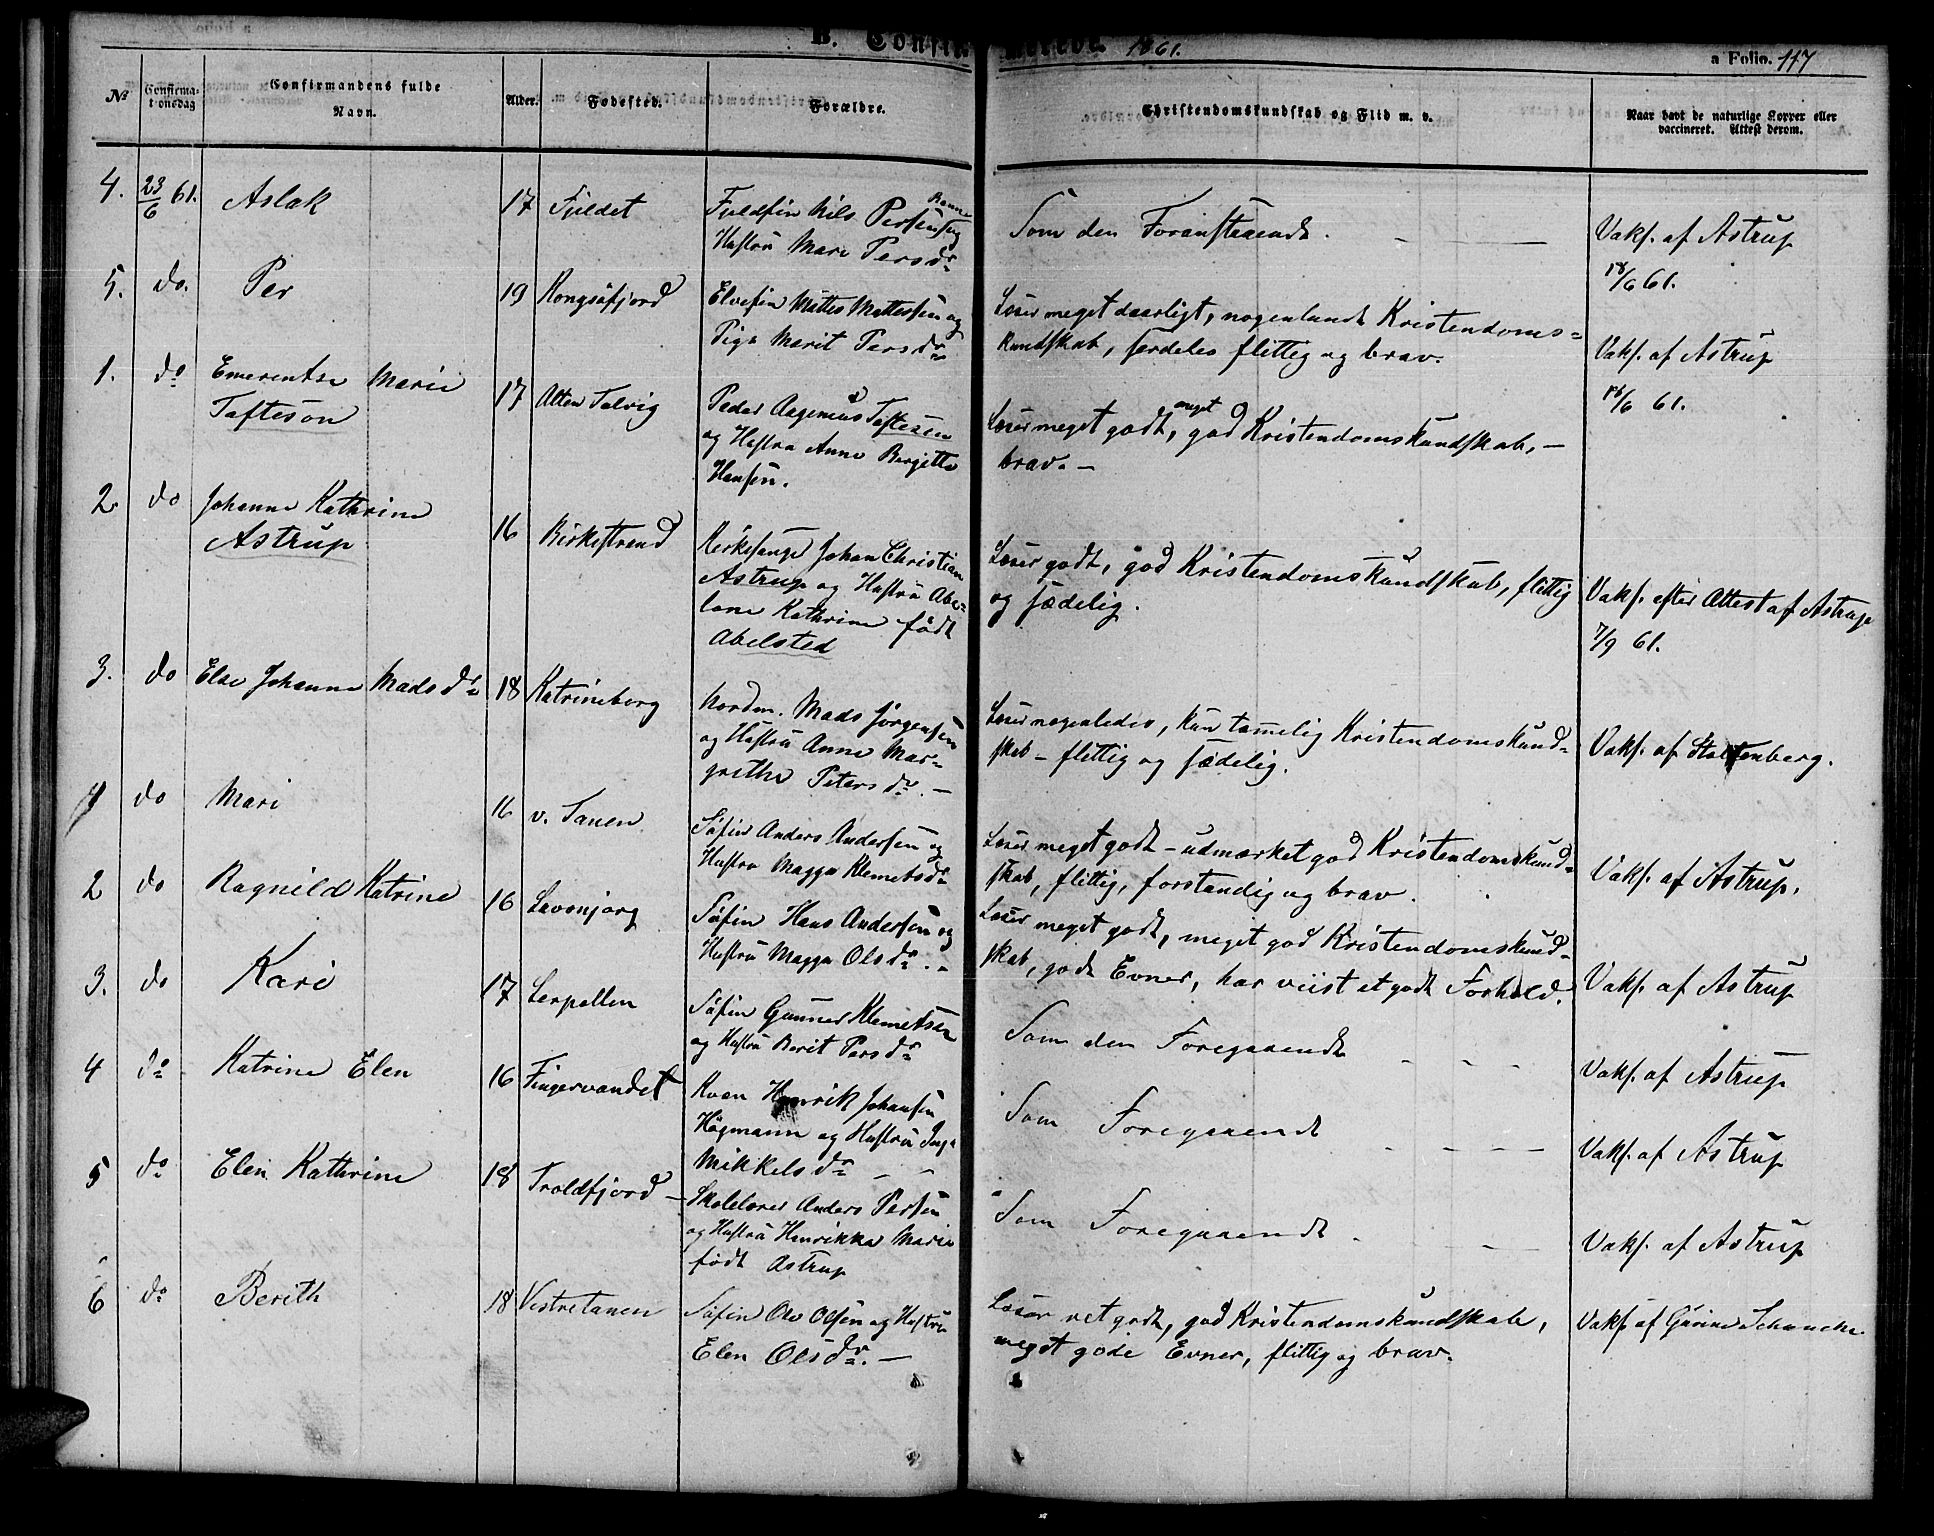 B. Confirmerede. 1861.
a Folio. 117
No
Confirmationsdag
Confirmandens fulde Navn.
Alder.
Fødested.
Forældre.
Christendomskundskab og Flid m. v.
Naar havt de naturlige Kopper eller vaccineret. Attest derom.
4. 23/6 61. Aslak 17 Fjeldet
Fjeldfin Nils Persen Banne og
Hustru Mari Persdr
Som den Foranstaaende. - —
Vaks. af Astrup
18/6 61.
5. do. Per 19 Kongsøfjord
Elvefin Mattis Mattessen og
Pige Marit Persdr
Læser meget daarligt, nogenlunde Kristendoms-
kundskab, særdeles flittig og brav.
Vaks. af Astrup
18/6 61.
1. do Emerentse Marie
Tafteson
17 Alten Talvig
Peder Aagemus Taftesen
og Hustru Anne Bergitte
Hansen.
Læser meget godt, meget god Kristendomskundskab, —
brav. —
2. do Johanne Kathrine
Astrup
16 Birkestrand
Kirkesanger Johan Christian
Astrup og Hustru Abe-
lone Kathrine født
Abelsted
Læser godt, god Kristendomskundskab, flittig
og sædelig.
Vaks. efter Attest af Astrup
7/9 61.
3. do Else Johanne Madsdr 18 Katrineborg
Nordm. Mads Jørgensen
og Hustru Anne Mar-
grethe Petersdr. —
Læser nogenledes, kun tamelig Kristendomskund-
skab - flittig og sædelig.
Vaks. af Stoltenberg.
1 do Mari 16 v. Tanen
Søfin Anders Andersen og
Hustru Magga Klemetsdr
Læser meget godt - udmærket god Kristendomskund-
skab, flittig, forstandig og brav.
Vaks. af Astrup.
2 do Ragnild Katrine 16 Lavonjorg
Søfin Hans Andersen og
Hustru Magga Olsdr. -
Læser meget godt, meget god Kristendomskund-
skab, gode Evner, har viist et godt Forhold.
Vaks. af Astrup
3. do Kari 17 Lerpollen
Søfin Gunner Klemetsen
og Hustru Berit Persdr
Som den Foregaaende - - -
Vaks. af Astrup
4 do Katrine Elen 16 Fingervandet
Kvæn Henrik Johansen
Högmann og Hustru Inga
Mikkelsdr - -
Som Foregaaende - - - —
Vaks. af Astrup
5 do Elen Kathrine 18 Troldfjord -
Skolelærer Anders Persen
og Hustru Henrikka Marie
født Astrup
Som Foregaaende - - - —
Vaks. af Astrup
6 do Berith 18 Vestretanen
Søfin Ole Olsen og Hustru
Elen Olsdr. —
Læser ret godt, god Kristendomskundskab,
meget gode Evner, flittig og brav.
Vaks. af Gurine Schanche